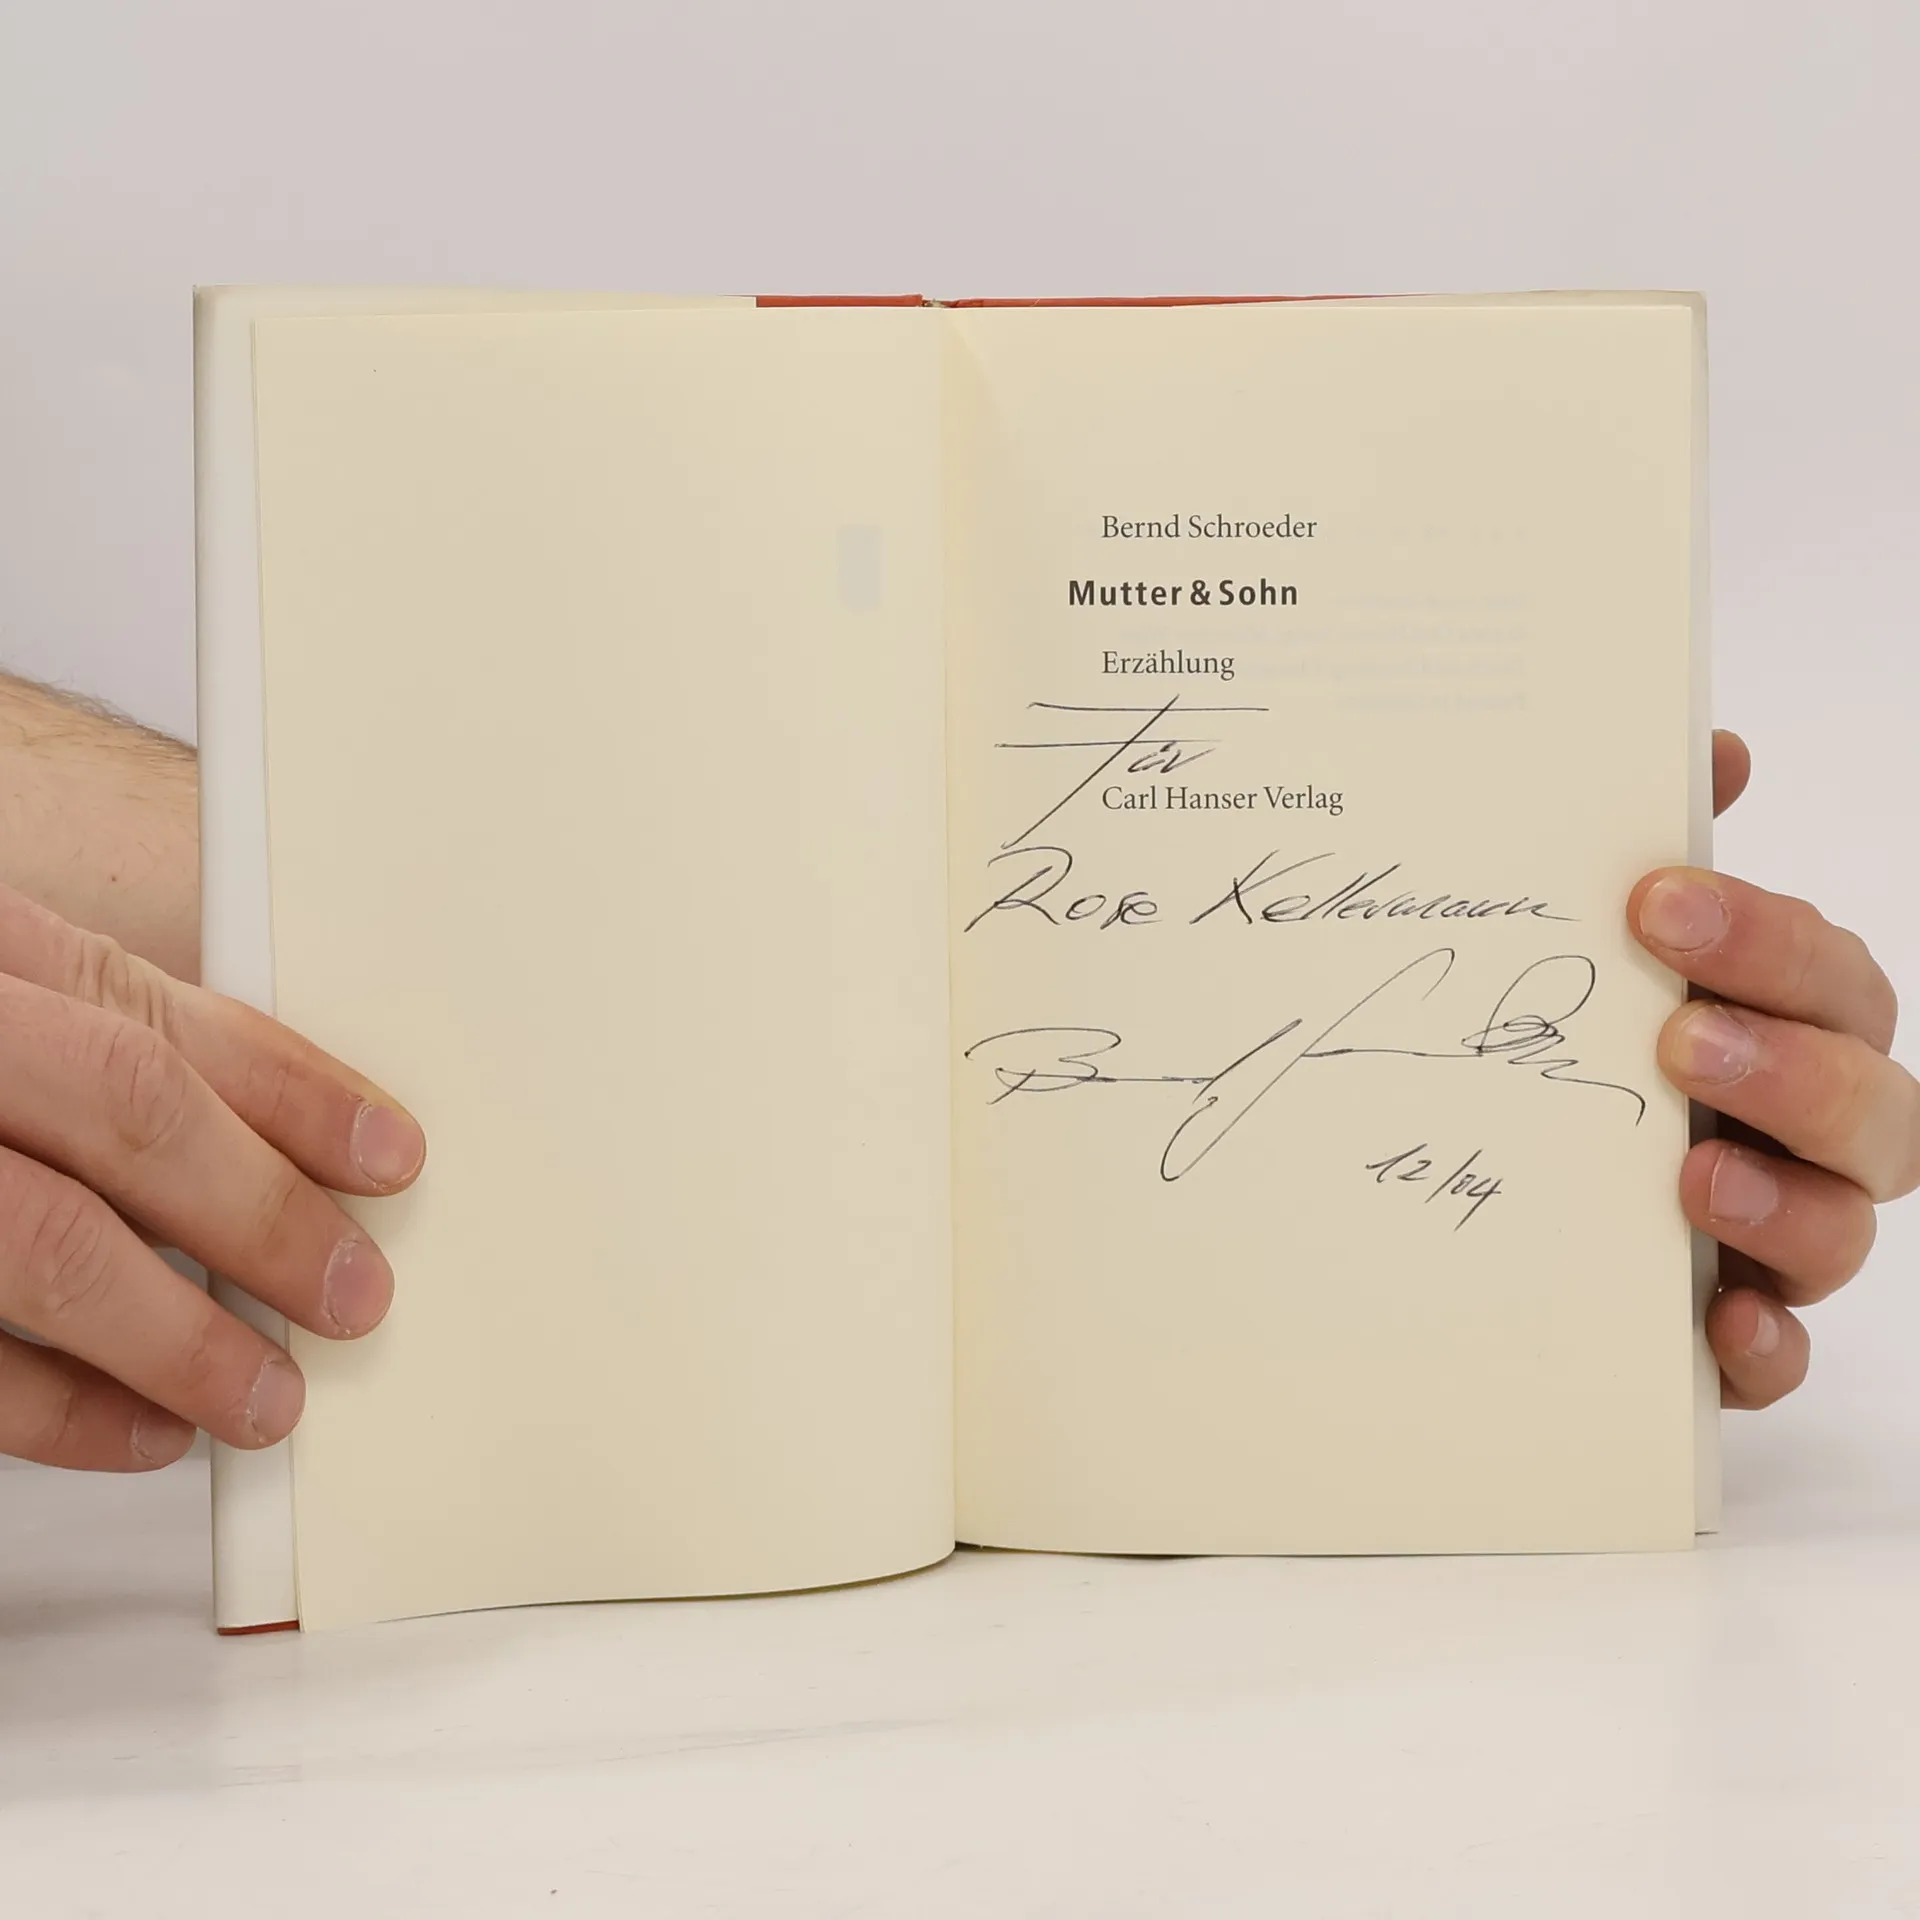 Bernd Schroeder
Mutter & Sohn
Erzählung
Für
Carl Hanser Verlag
Rose Kellermann
12/04